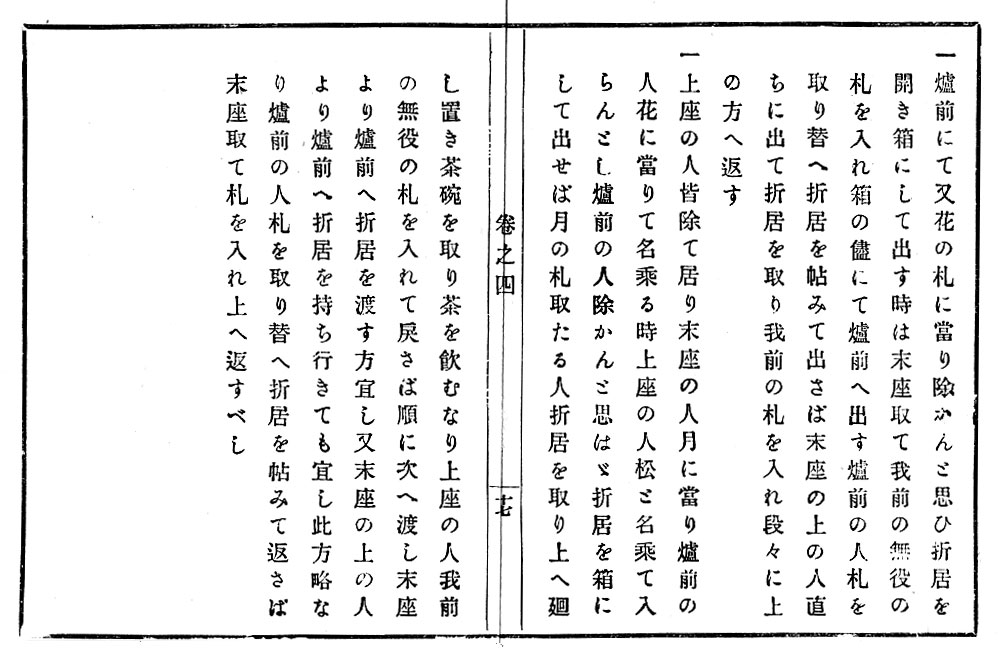 一爐前にて又花の札に當り除かんと思ひ折居を
開き箱にして出す時は末座取て我前の無役の
札を入れ箱の儘にて爐前へ出す爐前の人札を
取り替へ折居を帖みて出さば末座の上の人直
ちに出て折居を取り我前の札を入れ段々に上
の方へ返す
一上座の人皆除て居り末座の人月に當り爐前の
人花に當りて名乘る時上座の人松と名乘て入
らんとし爐前の人除かんと思はゞ折居を箱に
して出せば月の札取たる人折居を取り上へ廻
卷之四
十七
し置き茶碗を取り茶を飮むなり上座の人我前
の無役の札を入れて戻さば順に次へ渡し末座
より爐前へ折居を渡す方宜し又末座の上の人
より爐前へ折居を持ち行きても宜し此方略な
り爐前の人札を取り替へ折居を帖みて返さば
末座取て札を入れ上へ返すべし